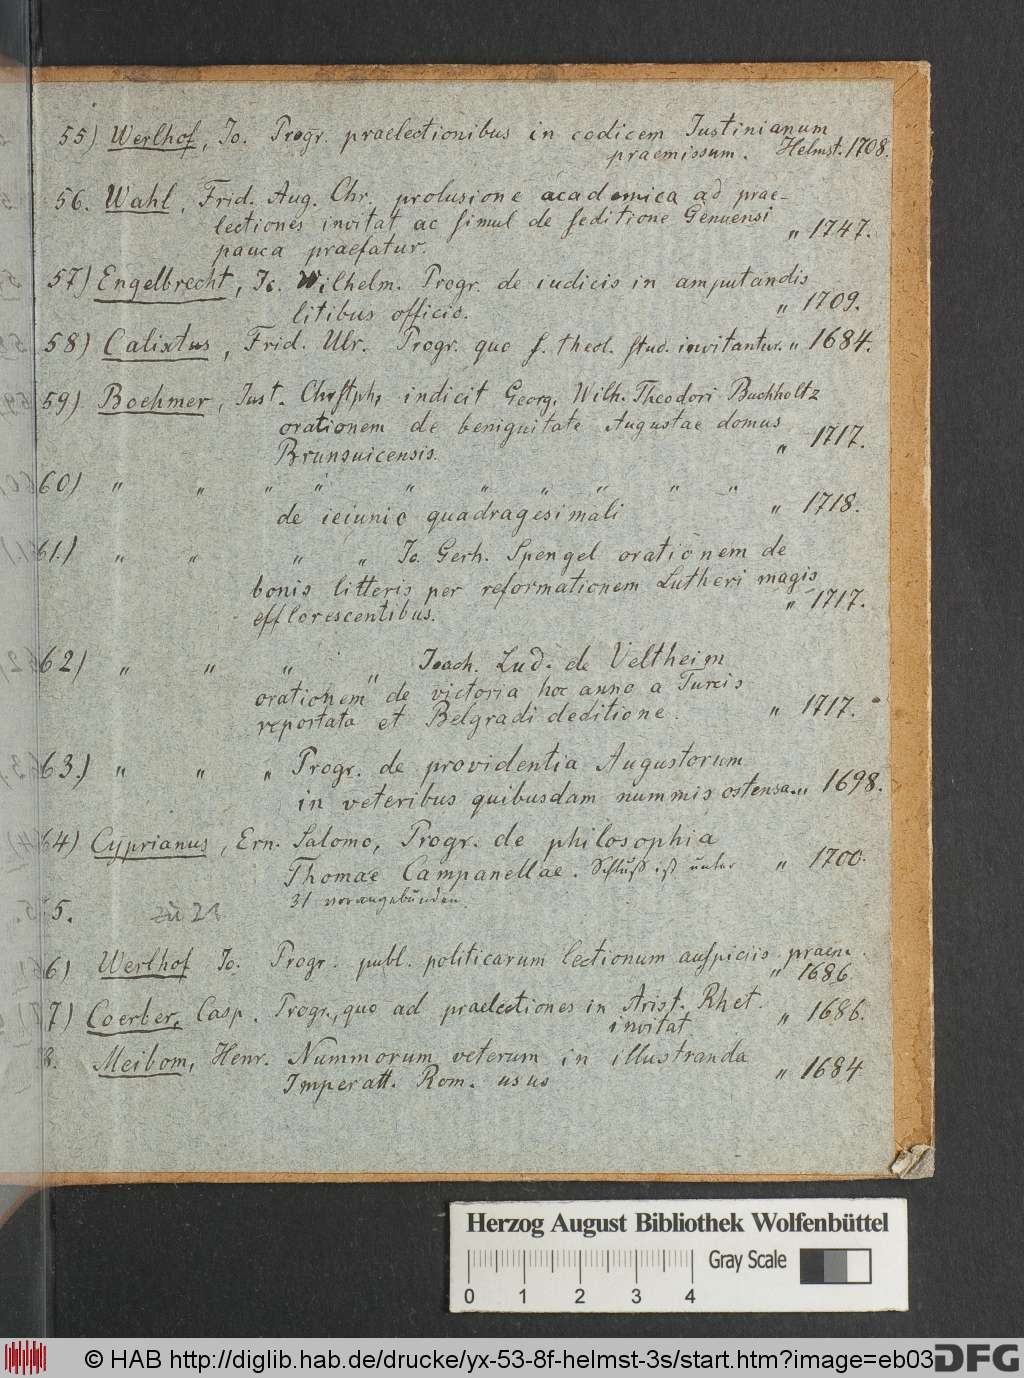 55) Werlhof, Jo. Progr. praelectionibus in codicem Iustinianum
praemissum. Helmst. 1708.
56. Wahl, Frid. Aug. Chr. prolusione academica ad prae-
lectiones invitat ac simul de seditione Genuensi
pauca praefatur. " 1747.
57) Engelbrecht, Jo. Wilhelm. Progr. de iudicis in amputandis
litibus officio. " 1709.
58) Calixtus, Frid. Ulr. Progr. quo s. theol. stud. invitantur. " 1684.
59) Boehmer, Just. Chrstph, indicit Georg. Wilh. Theodori Buchholtz
orationem de benignitate Augustae domus
Brunsuicensis. " 1717.
60) " " " " " " " " " "
de ieiunio quadragesimali " 1718.
61.) " " " " Jo. Gerh. Spengel orationem de
bonis litteris per reformationem Lutheri magis
efflorescentibus. " 1717.
62) " " " " Joach. Lud. de Veltheim
orationem de victoria hoc anno a Turcis
reportata et Belgradi deditione. " 1717.
63.) " " " Progr. de providentia Augustorum
in veteribus quibusdam nummis ostensa. " 1698.
64) Cyprianus, Ern. Salomo, Progr. de philosophia
Thomae Campanellae. Schluß ist unter " 1700.
31 vorangebunden.
5. zu 23
6) Werlhof Jo. Progr. publ. politicarum lectionum auspiciis praem.
" 1686.
7) Coerber, Casp. Progr., quo ad praelectiones in Arist. Rhet.
invitat " 1686.
8. Meibom, Henr. Nummorum veterum in illustranda
Imperatt. Rom. usus " 1684
Herzog August Bibliothek Wolfenbüttel
Gray Scale
0 1 2 3 4
© HAB http://diglib.hab.de/drucke/yx-53-8f-helmst-3s/start.htm?image=eb03
DFG